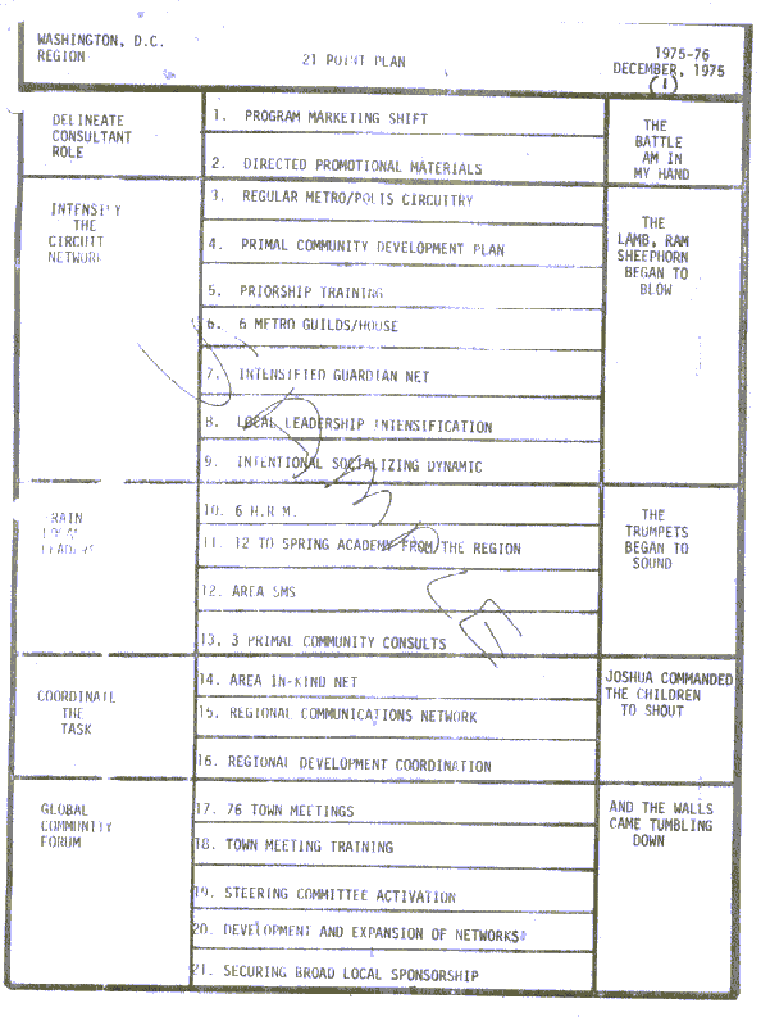 WASHINGTON, D.C.
REGION
21 POINT PLAN
1975-76
DECEMBER, 1975
(1)
DELINEATE
CONSULTANT
ROLE
1. PROGRAM MARKETING SHIFT
2. DIRECTED PROMOTIONAL MATERIALS
THE
BATTLE
AM IN
MY HAND
INTENSIFY
THE
CIRCUIT
NETWORK
3. REGULAR METRO/POLIS CIRCUITRY
4. PRIMAL COMMUNITY DEVELOPMENT PLAN
5. PRIORSHIP TRAINING
6. 6 METRO GUILDS/HOUSE
7. INTENSIFIED GUARDIAN NET
8. LOCAL LEADERSHIP INTENSIFICATION
9. INTENTIONAL SOCIALIZING DYNAMIC
THE
LAMB, RAM
SHEEPHORN
BEGAN TO
BLOW
TRAIN
LOCAL
LEADERS
10. 6 H.R.M.
11. 12 TO SPRING ACADEMY FROM THE REGION
12. AREA SMS
13. 3 PRIMAL COMMUNITY CONSULTS
THE
TRUMPETS
BEGAN TO
SOUND
COORDINATE
THE
TASK
14. AREA IN-KIND NET
15. REGIONAL COMMUNICATIONS NETWORK
16. REGIONAL DEVELOPMENT COORDINATION
JOSHUA COMMANDED
THE CHILDREN
TO SHOUT
GLOBAL
COMMUNITY
FORUM
17. 76 TOWN MEETINGS
18. TOWN MEETING TRAINING
19. STEERING COMMITTEE ACTIVATION
20. DEVELOPMENT AND EXPANSION OF NETWORKS
21. SECURING BROAD LOCAL SPONSORSHIP
AND THE WALLS
CAME TUMBLING
DOWN